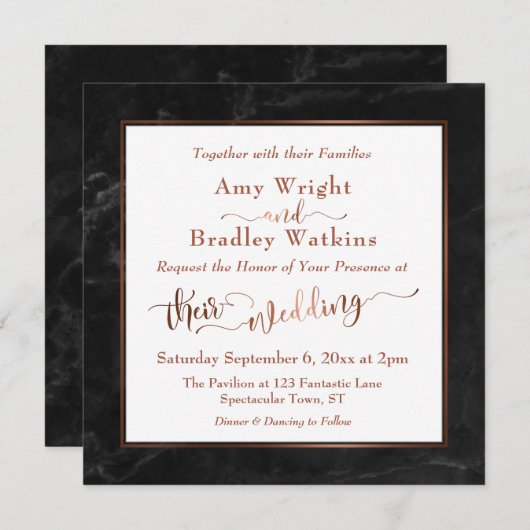 Together with their Families
Amy Wright
and
Bradley Watkins
Request the Honor of Your Presence at
their Wedding
Saturday September 6, 20xx at 2pm
The Pavilion at 123 Fantastic Lane
Spectacular Town, ST
Dinner & Dancing to Follow